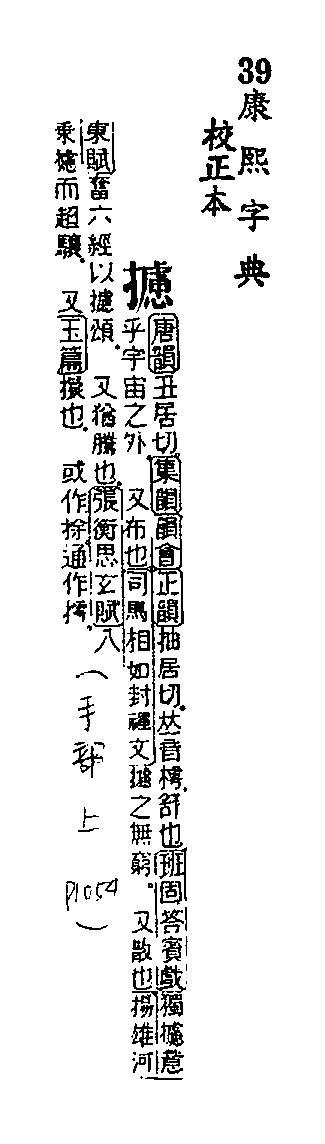 39康熙字典
校正本
攄
唐韻丑居切集韻韻會正韻抽居切𠀤音樗舒也班固答賓戲獨攄意
乎宇宙之外 又布也司馬相如封禪文攄之無窮。又散也揚雄河
東賦奮六經以攄頌。又猶騰也。張衡思玄賦八
乘攄而超驤。又玉篇擬也。或作捈通作樗。
(手部上 P1054)